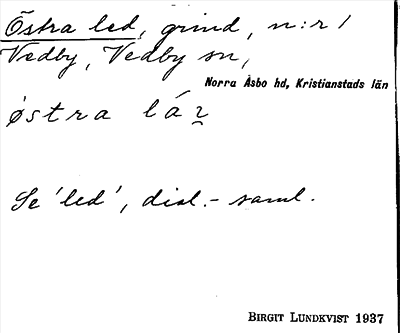 Östra led, grind, n:r 1
Vedby, Vedby sn,
Norra Åsbo hd, Kristianstads län
østra lá
Se 'led', dial.- saml.
BIRGIT LUNDKVIST 1937